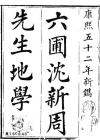 康熙五十二年新鐫
六圃沈新周
先生地學